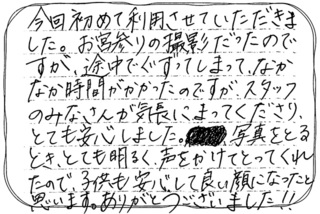 今回初めて利用させていただきま
した。お宮参りの撮影だったので
すが、途中でぐずってしまって、なか
なか時間がかかったのですが、スタッフ
のみなさんが気長にまってくださり、
とても安心しました。写真をとる
とき、とても明るく、声をかけてとってくれ
たので、子供も安心して良い顔になったと
思います。ありがとうございました!!